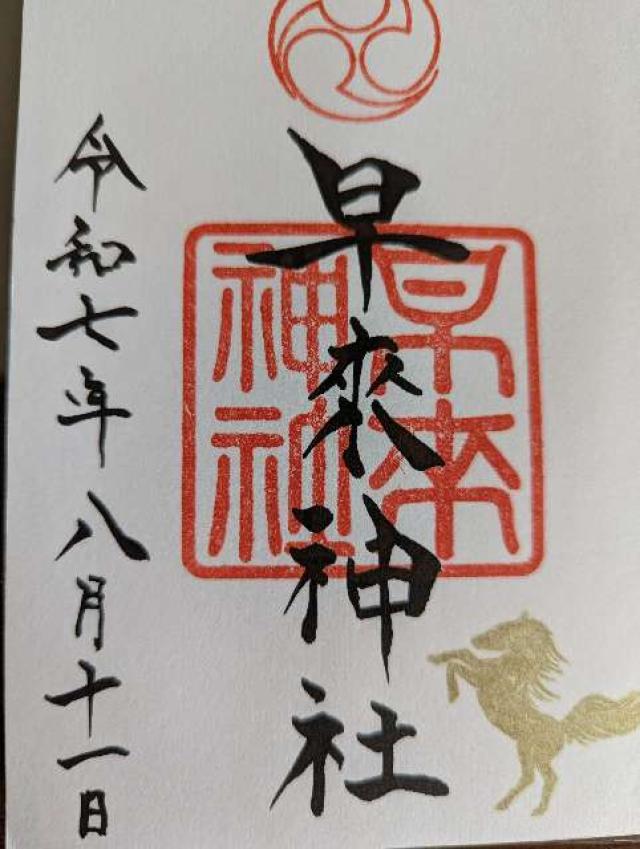 早来神社
早来
神社
令和七年八月十一日